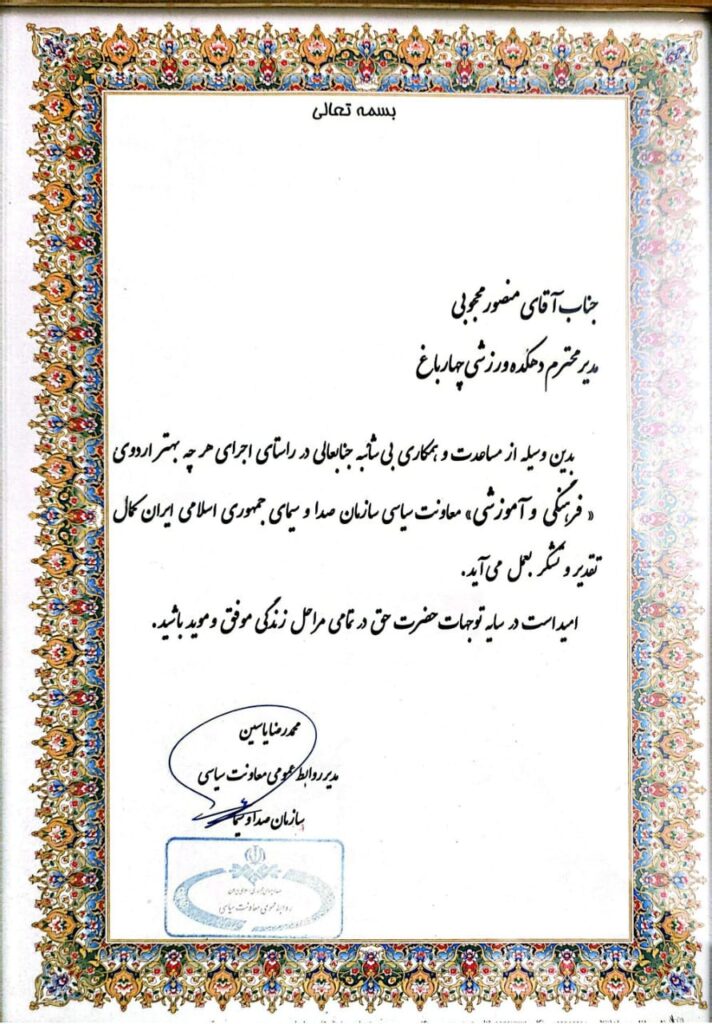 بسمه تعالی
جناب آقای منصور محجوبی
مدیر محترم دهکده ورزشی چهارباغ
بدین وسیله از مساعدت و همکاری بی شائبه جنابعالی در راستای اجرای هر چه بهتر اردوی
« فرهنگی و آموزشی» معاونت سیاسی سازمان صدا و سیمای جمهوری اسلامی ایران کمال
تقدیر و تشکر بعمل می آید.
امید است در سایه توجهات حضرت حق در تمامی مراحل زندگی موفق و موید باشید.
محمدرضا یاسین
مدیر روابط عمومی معاونت سیاسی
سازمان صدا و سیما
صدا و سیمای جمهوری اسلامی ایران
روابط عمومی معاونت سیاسی